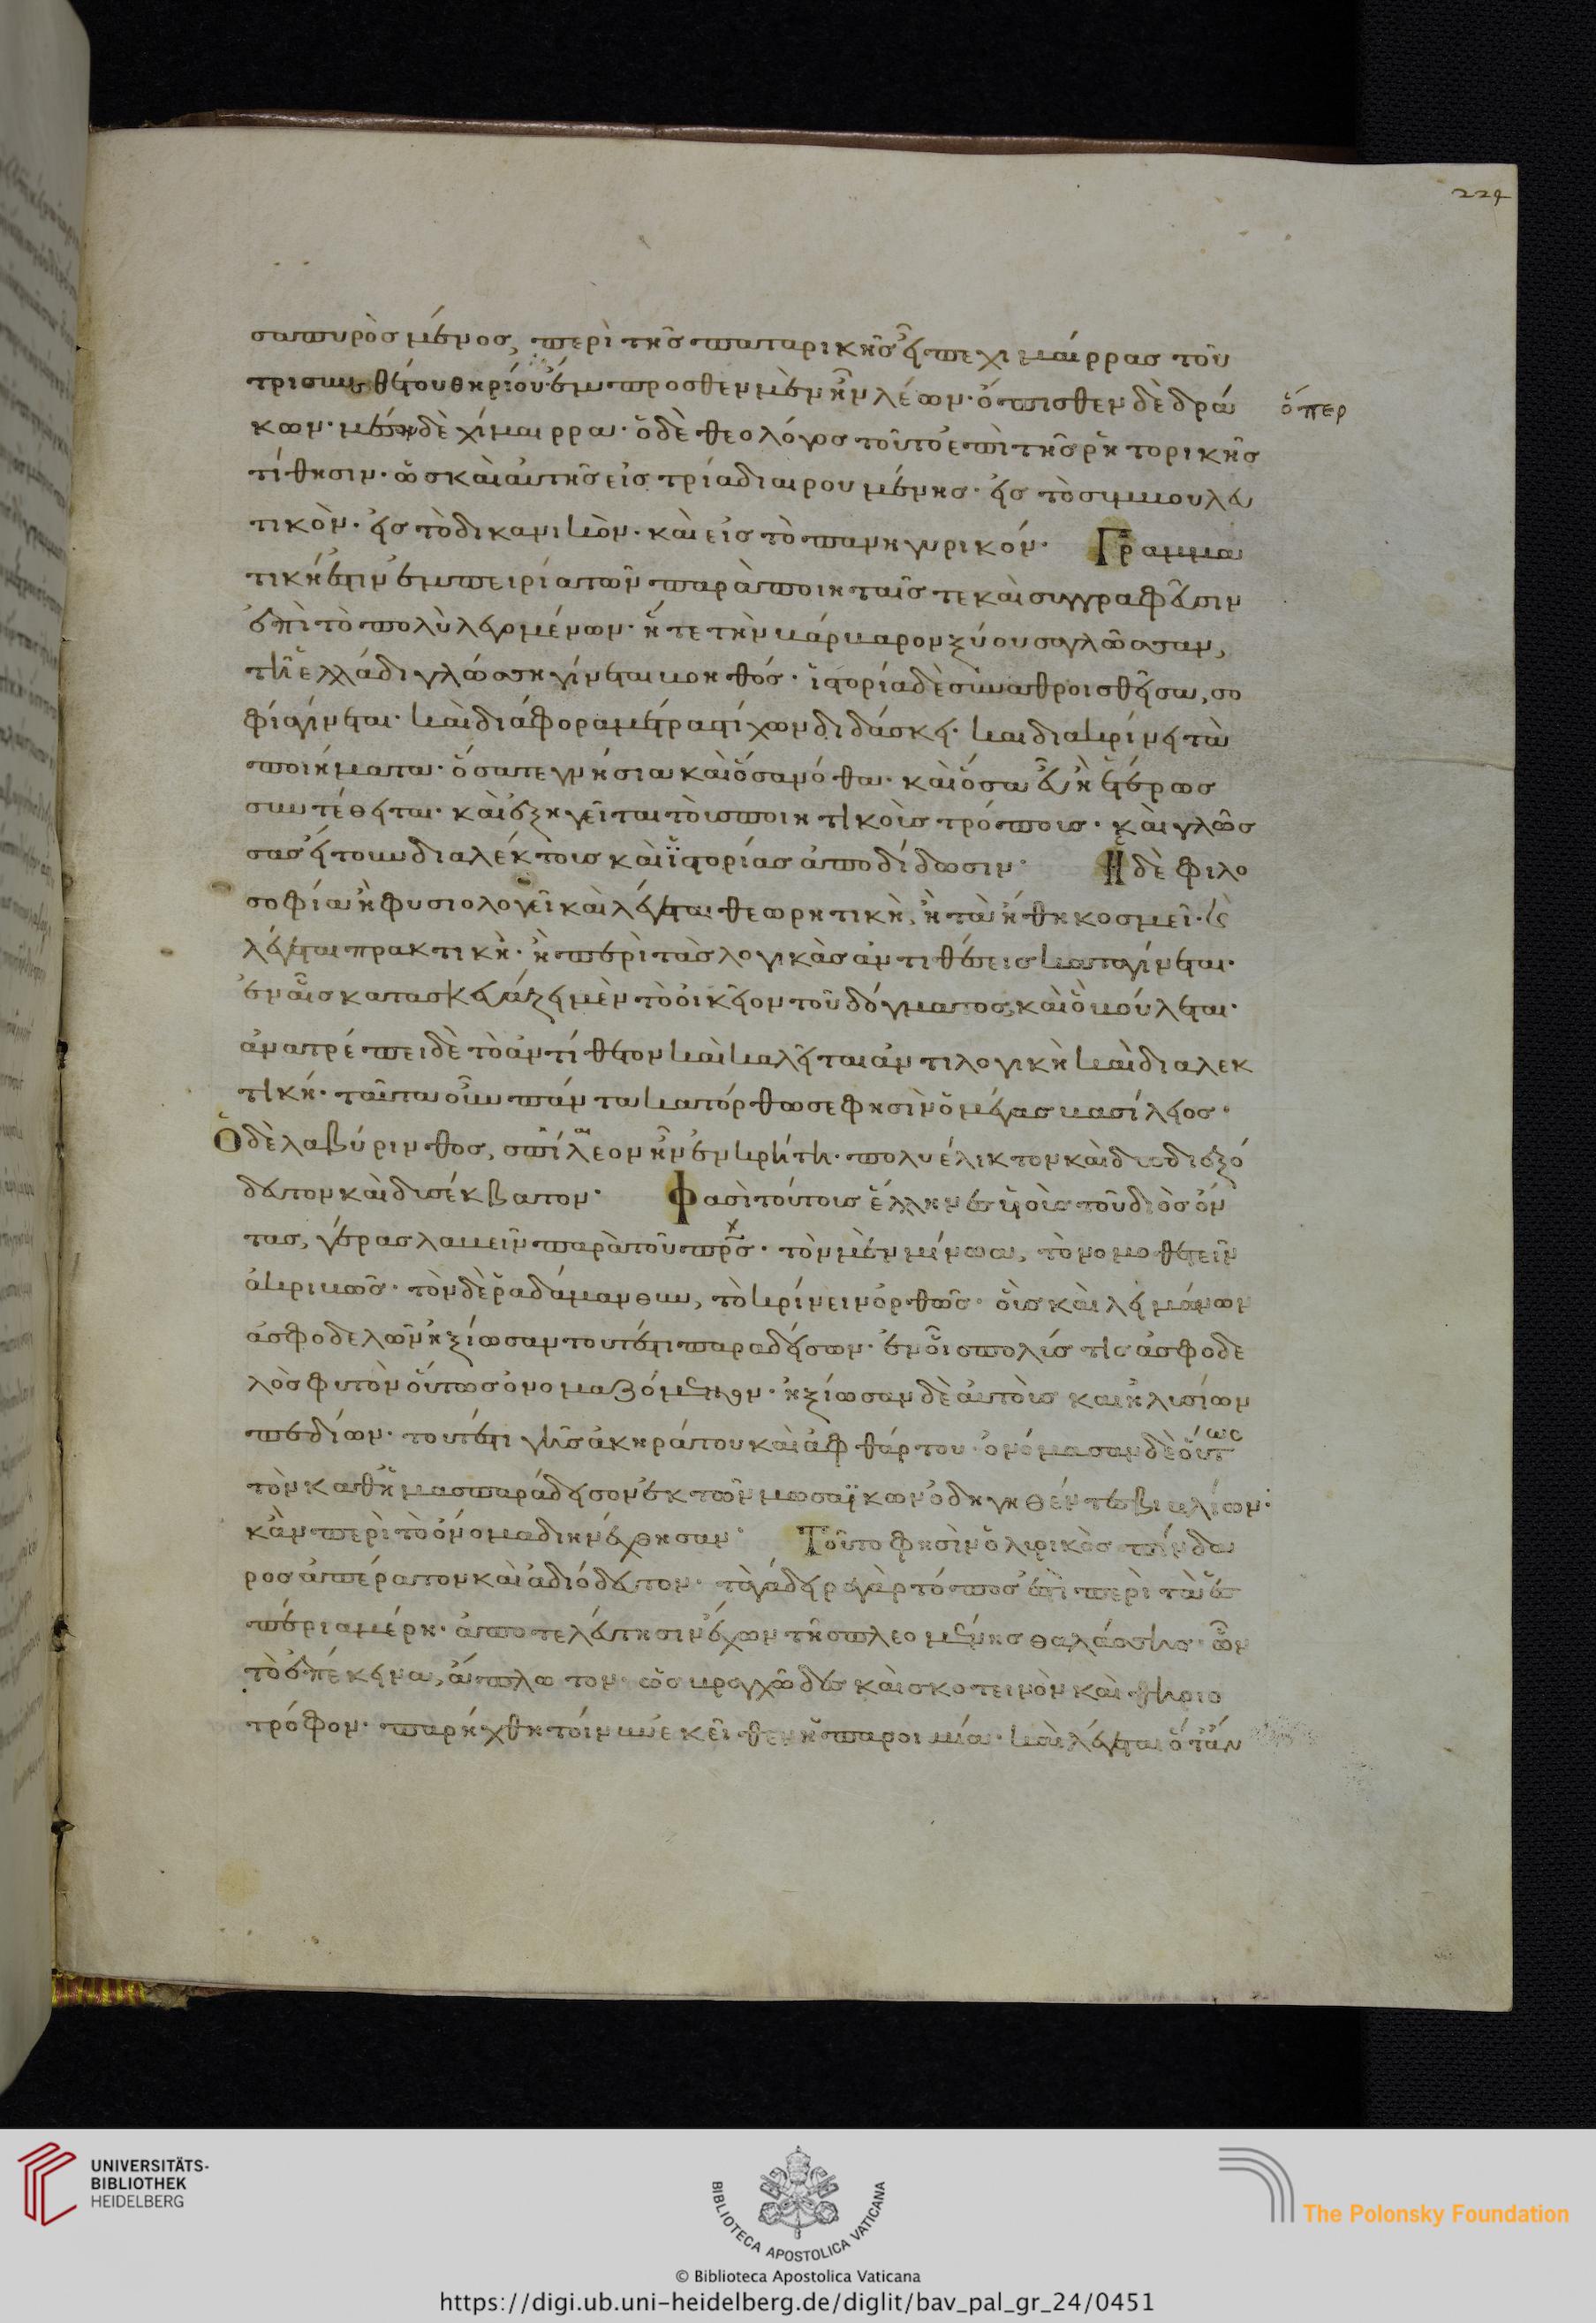 224
σα πυρὸσ μένοσ, περὶ τῆσ παταρικῆσ εἶπε χιμαίρρασ τοῦ
τρισυνθέτου θηρίου· ἔμπροσθεν μὲν ἦν λέων· ὄπισθεν δὲ δρά
ὅπερ
κων· μέση δὲ χίμαιρρα· ὁ δὲ θεολόγοσ τοῦτο ἐπὶ τῆσ ῥητορικῆσ
τίθησιν· ὡσ καὶ αὐτῆσ εἰσ τρία διαιρουμένησ· εἰσ τὸ συμβουλευ
τικὸν· εἰσ τὸ δικανικὸν· καὶ εἰσ τὸ πανηγυρικόν· Γραμμα
τική ἐστιν ἐμπειρία τῶν παρὰ ποιηταῖσ τε καὶ συγγραφεῦσιν
ἐπὶ τὸ πολὺ λεγομένων· ἥτε τὴν βάρβαρον ξύουσα γλῶσσαν,
τῆ ἑλλάδι γλώσση γίνεται βοηθόσ· ἱστορία δὲ συναθροισθεῖσα, σο
φία γίνεται· καὶ διάφορα μέτρα στίχων διδάσκει· καὶ διακρίνει τὰ
ποιήματα· ὅσα τε γνήσια καὶ ὅσα νόθα· καὶ ὅσα εὖ ἢ ἑτέρωσ
συντέθειται· καὶ ἐξηγεῖται τοῖσ ποιητικοῖσ τρόποισ· καὶ γλώσ
σασ ἤτουν διαλέκτουσ καὶ ἱστορίασ ἀποδίδωσιν· Ἡ δὲ φιλο
σοφία ἢ φυσιολογεῖ καὶ λέγεται θεωρητικὴ, ἢ τὰ ἤθη κοσμεῖ· καὶ
λέγεται πρακτικὴ· ἢ περὶ τὰσ λογικὰσ ἀντιθέσεισ καταγίνεται·
ἐν αἷσ κατασκευάζει μὲν τὸ οἰκεῖον τοῦ δόγματοσ, καὶ ὃ βούλεται·
ἀνατρέπει δὲ τὸ ἀντίθετον καὶ καλεῖται ἀντιλογικὴ καὶ διαλεκ
τική· ταῦτα οὖν πάντα κατόρθωσε φησὶν ὁ μέγασ βασίλειοσ·
Ὁ δὲ λαβύρινθοσ, σπίλεον ἦν ἐν κρήτη· πολυέλικτον καὶ δυσδιεξό
δευτον καὶ δυσέκβατον· Φασὶ τούτουσ ἕλληνεσ υἱοὺσ τοῦ διὸσ ὄν
τασ, γέρασ λαβεῖν παρὰ τοῦ πρσ· τὸν μὲν μίνωα, τὸ νομοθετεῖν
ἀκριβῶσ· τὸν δὲ ῥαδάμανθυν, τὸ κρίνειν ὀρθῶσ· οἷσ καὶ λειμώνων
ἀσφοδελῶν ἠξίωσαν τουτέστι παραδείσων· ἐν οἷσ πολύσ τισ ἀσφοδε
λὸσ φυτὸν οὕτωσ ὀνομαζόμενον· ἠξίωσαν δὲ αὐτοὺσ καὶ ἠλυσίων
πεδίων· τουτέστι γῆσ ἀκηράτου καὶ ἀφθάρτου· ὀνόμασαν δὲ οὕτως
τὸν καθ ἡμασ παράδεισον ἐκ τῶν μωσαϊκων ὁδηγηθέντεσ βιβλίων·
κἂν περὶ τὸ ὄνομα διηνέχθησαν· Τοῦτο φησὶν ὁ λυρικὸσ πίνδα
ροσ ἀπέρατον καὶ ἀδιόδευτον· τὰ γάδειρα γὰρ τόποσ ἐστὶ περὶ τὰ ἑσ
πέρια μέρη· ἀποτελεύτησιν ἔχων τῆσ πλεομένησ θαλάσσησ· ὧν
τὸ ἐπέκεινα, ἄπλωτον· ὡσ βραχῶδεσ καὶ σκοτεινὸν καὶ θηριο
τρόφον· παρήχθη τοίνυν ἐκεῖθεν ἡ παροιμία· καὶ λέγεται ὅταν
UNIVERSITÄTS-
BIBLIOTHEK
HEIDELBERG
BIBLIOTECA APOSTOLICA VATICANA
The Polonsky Foundation
© Biblioteca Apostolica Vaticana
https://digi.ub.uni-heidelberg.de/diglit/bav_pal_gr_24/0451